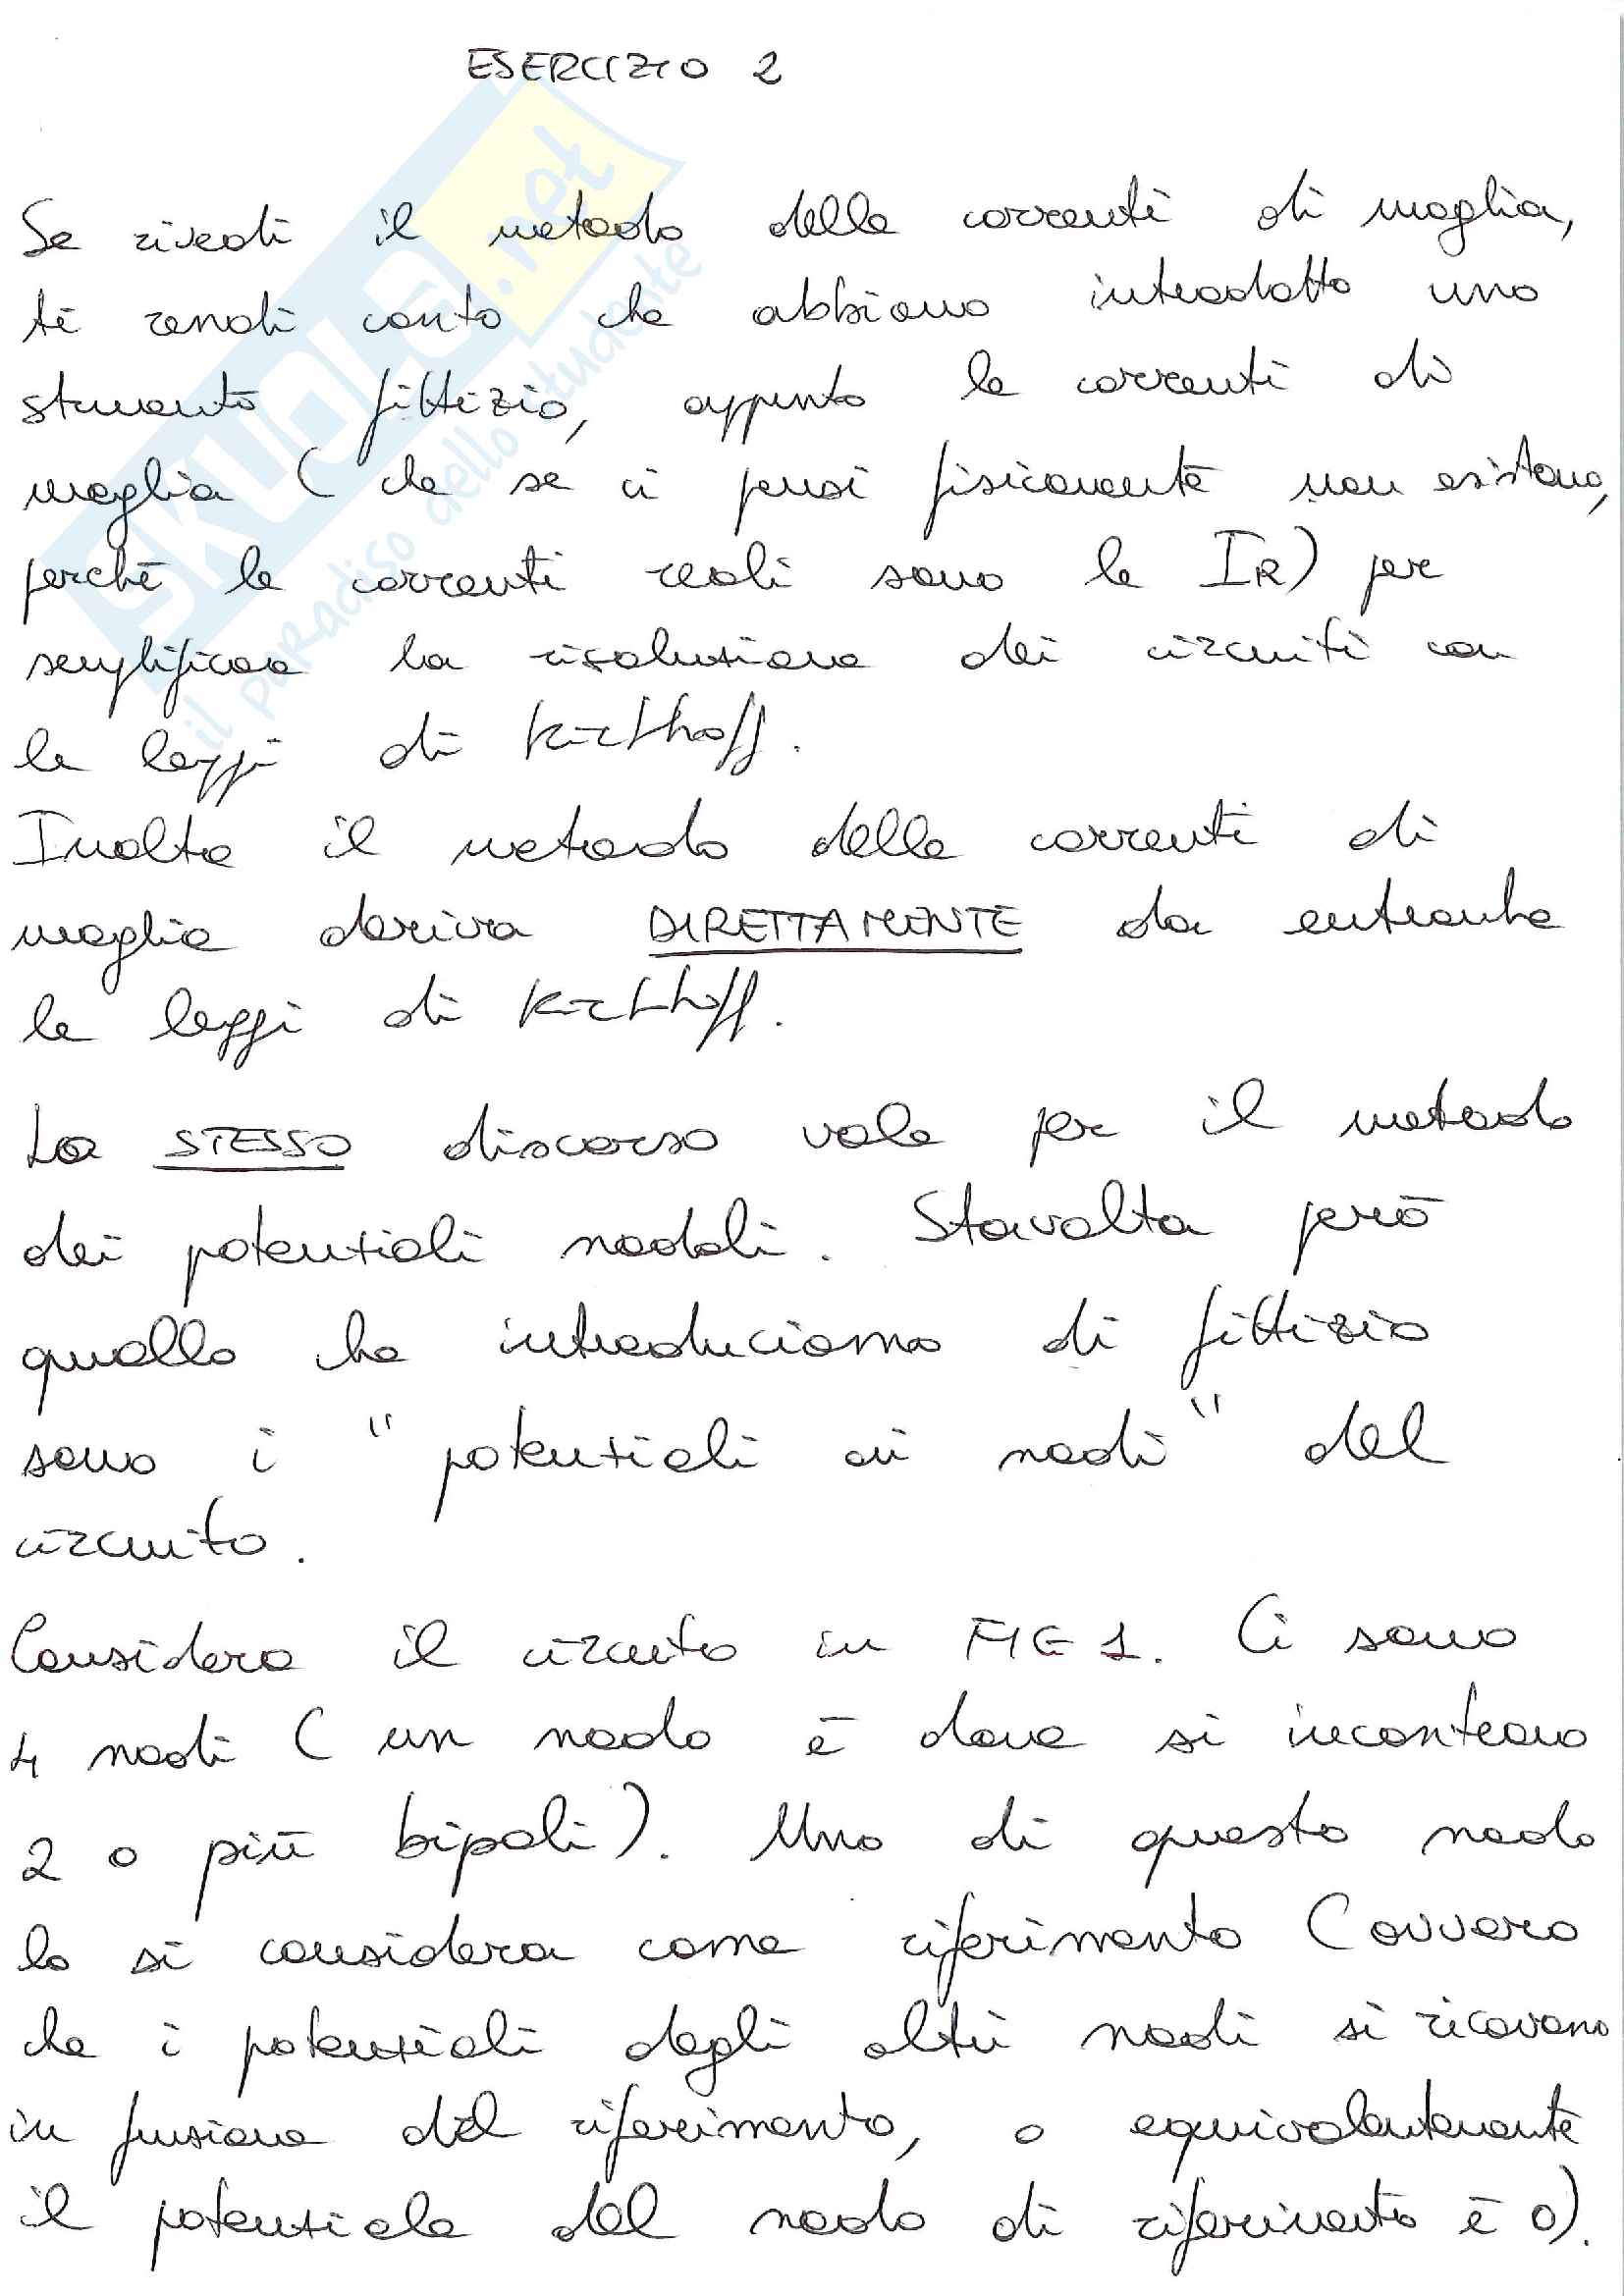 ESERCIZIO 2
Se rivedi il metodo delle correnti di maglia,
ti rendi conto che abbiamo introdotto uno
strumento fittizio, appunto le correnti di
maglia ( che se ci pensi fisicamente non esistono,
perchè le correnti reali sono le IR) per
semplificare la risoluzione dei circuiti con
le leggi di Kirchhoff.
Inoltre il metodo delle correnti di
maglia deriva DIRETTAMENTE da entrambe
le leggi di Kirchhoff.
Lo STESSO discorso vale per il metodo
dei potenziali nodali. Stavolta però
quello che introduciamo di fittizio
sono i "potenziali ai nodi" del
circuito.
Considera il circuito in FIG 1. Ci sono
4 nodi ( un nodo è dove si incontrano
2 o più bipoli). Uno di questo nodo
lo si considera come riferimento ( ovvero
che i potenziali degli altri nodi si ricavano
in funzione del riferimento, o equivalentemente
il potenziale del nodo di riferimento è 0).
SKUOLA.net
il paradiso dello studente